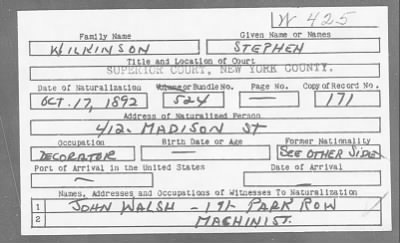 W 425
Family Name Given Name or Names
WILKINSON STEPHEN
Title and Location of Court
SUPERIOR COURT, NEW YORK COUNTY.
Date of Naturalization Volume or Bundle No. Page No. Copy of Record No.
OCT. 17, 1892 524 — 171
Address of Naturalized Person
412. MADISON ST
Occupation Birth Date or Age Former Nationality
DECORATOR — SEE OTHER SIDE
Port of Arrival in the United States Date of Arrival
— —
Names, Addresses and Occupations of Witnesses To Naturalization
1 JOHN WALSH - 191 PARK ROW
2 MACHINIST.